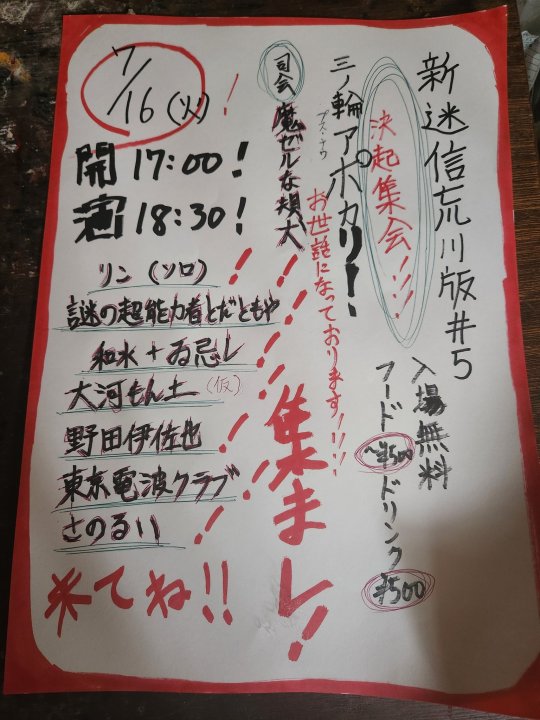 新迷信荒川版#5
決起集会!!!
入場無料
フード~¥500
ドリンク¥500
三ノ輪アポカリー、
プス・ナウ
お世話になっております!!!
司会
魔ゼルな規犬
集まレ!
7/16(火)!
開17:00!
演18:30!
リン(ソロ)!
謎の超能力者とだともや!
和水+ゐ忌レ!
大河もん土(仮)!
野田伊佐也!
東京電波クラブ!
さのるい!
来てね!!